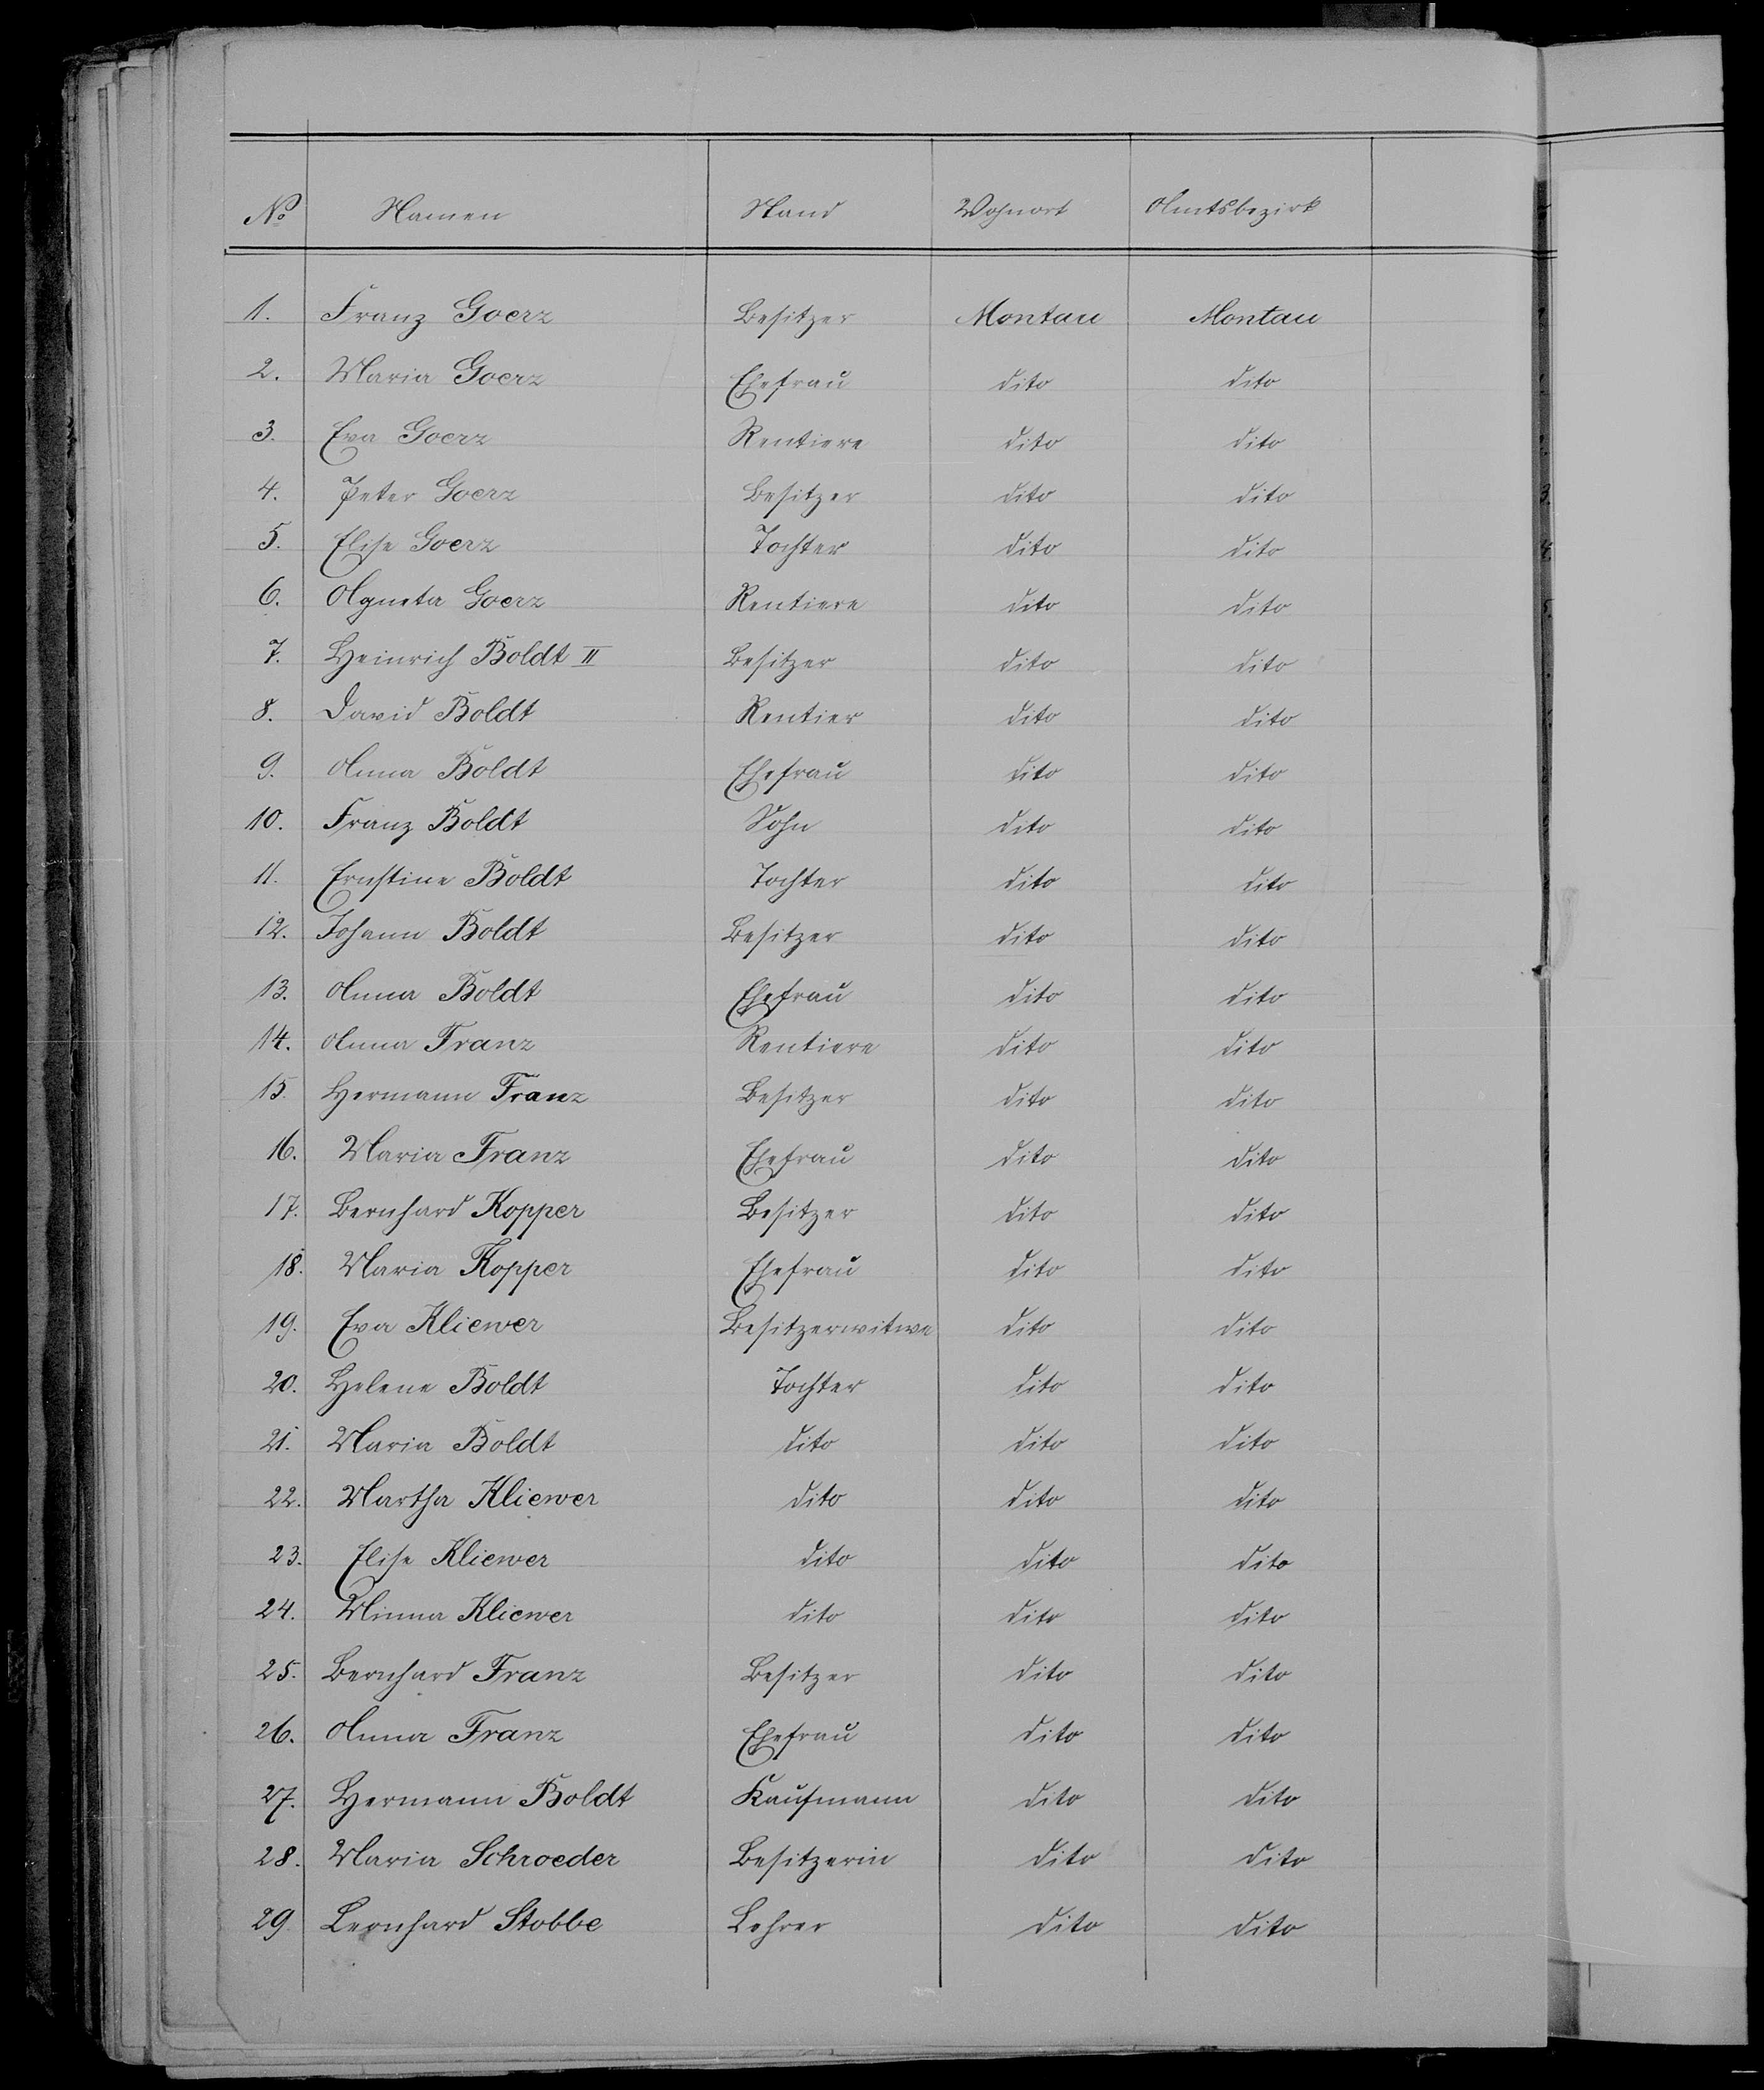 № Namen Stand Wohnort Amtsbezirk
1. Franz Goerz Besitzer Montau Montau
2. Maria Goerz Ehefrau dito dito
3. Eva Goerz Rentiere dito dito
4. Peter Goerz Besitzer dito dito
5. Elise Goerz Tochter dito dito
6. Agneta Goerz Rentiere dito dito
7. Heinrich Boldt II Besitzer dito dito
8. David Boldt Rentier dito dito
9. Anna Boldt Ehefrau dito dito
10. Franz Boldt Sohn dito dito
11. Ernstine Boldt Tochter dito dito
12. Johann Boldt Besitzer dito dito
13. Anna Boldt Ehefrau dito dito
14. Anna Franz Rentiere dito dito
15. Hermann Franz Besitzer dito dito
16. Maria Franz Ehefrau dito dito
17. Bernhard Kopper Besitzer dito dito
18. Maria Kopper Ehefrau dito dito
19. Eva Kliewer Besitzerwitwe dito dito
20. Helene Boldt Tochter dito dito
21. Maria Boldt dito dito dito
22. Martha Kliewer dito dito dito
23. Elise Kliewer dito dito dito
24. Minna Kliewer dito dito dito
25. Bernhard Franz Besitzer dito dito
26. Anna Franz Ehefrau dito dito
27. Hermann Boldt Kaufmann dito dito
28. Maria Schroeder Besitzerin dito dito
29 Leonhard Stobbe Lehrer dito dito